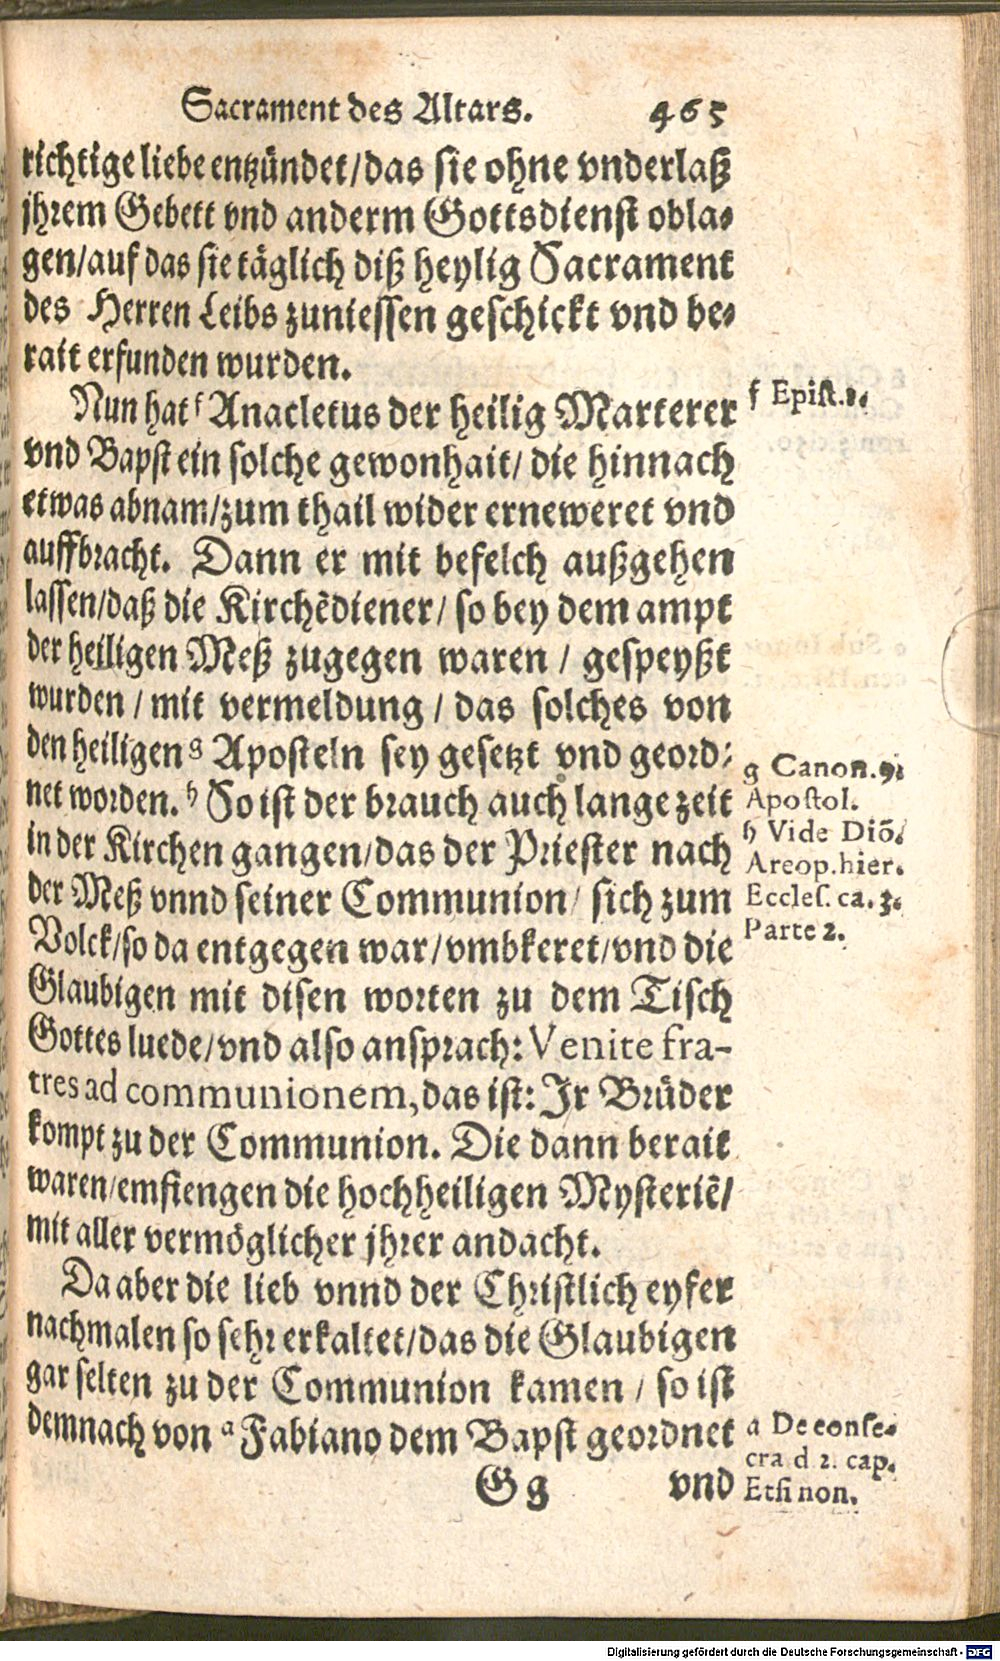 Sacrament des Altars. 465
richtige liebe entzündet/das sie ohne vnderlaß
jhrem Gebett vnd anderm Gottsdienst obla-
gen/auf das sie täglich diß heylig Sacrament
des Herren Leibs zuniessen geschickt vnd be-
rait erfunden wurden.
Nun hat f Anacletus der heilig Marterer
f Epist.1.
vnd Bapst ein solche gewonhait/ die hinnach
etwas abnam/zum thail wider erneweret vnd
auffbracht. Dann er mit befelch außgehen
lassen/daß die Kirchẽdiener/ so bey dem ampt
der heiligen Meß zugegen waren / gespeyßt
wurden / mit vermeldung / das solches von
den heiligen g Aposteln sey gesetzt vnd geord-
g Canon.9.
net worden. h So ist der brauch auch lange zeit
Apostol.
h Vide Diõ.
in der Kirchen gangen/das der Priester nach
Areop.hier.
der Meß vnnd seiner Communion/ sich zum
Eccles. ca. 3.
Volck/so da entgegen war/vmbkeret/vnd die
Parte 2.
Glaubigen mit disen worten zu dem Tisch
Gottes luede/vnd also ansprach: Venite fra-
tres ad communionem, das ist: Jr Brüder
kompt zu der Communion. Die dann berait
waren/emfiengen die hochheiligen Mysteriẽ/
mit aller vermöglicher jhrer andacht.
Da aber die lieb vnnd der Christlich eyfer
nachmalen so sehr erkaltet/das die Glaubigen
gar selten zu der Communion kamen / so ist
demnach von a Fabiano dem Bapst geordnet
a De conse-
cra d 2. cap.
Etsi non.
Gg vnd
Digitalisierung gefördert durch die Deutsche Forschungsgemeinschaft - DFG